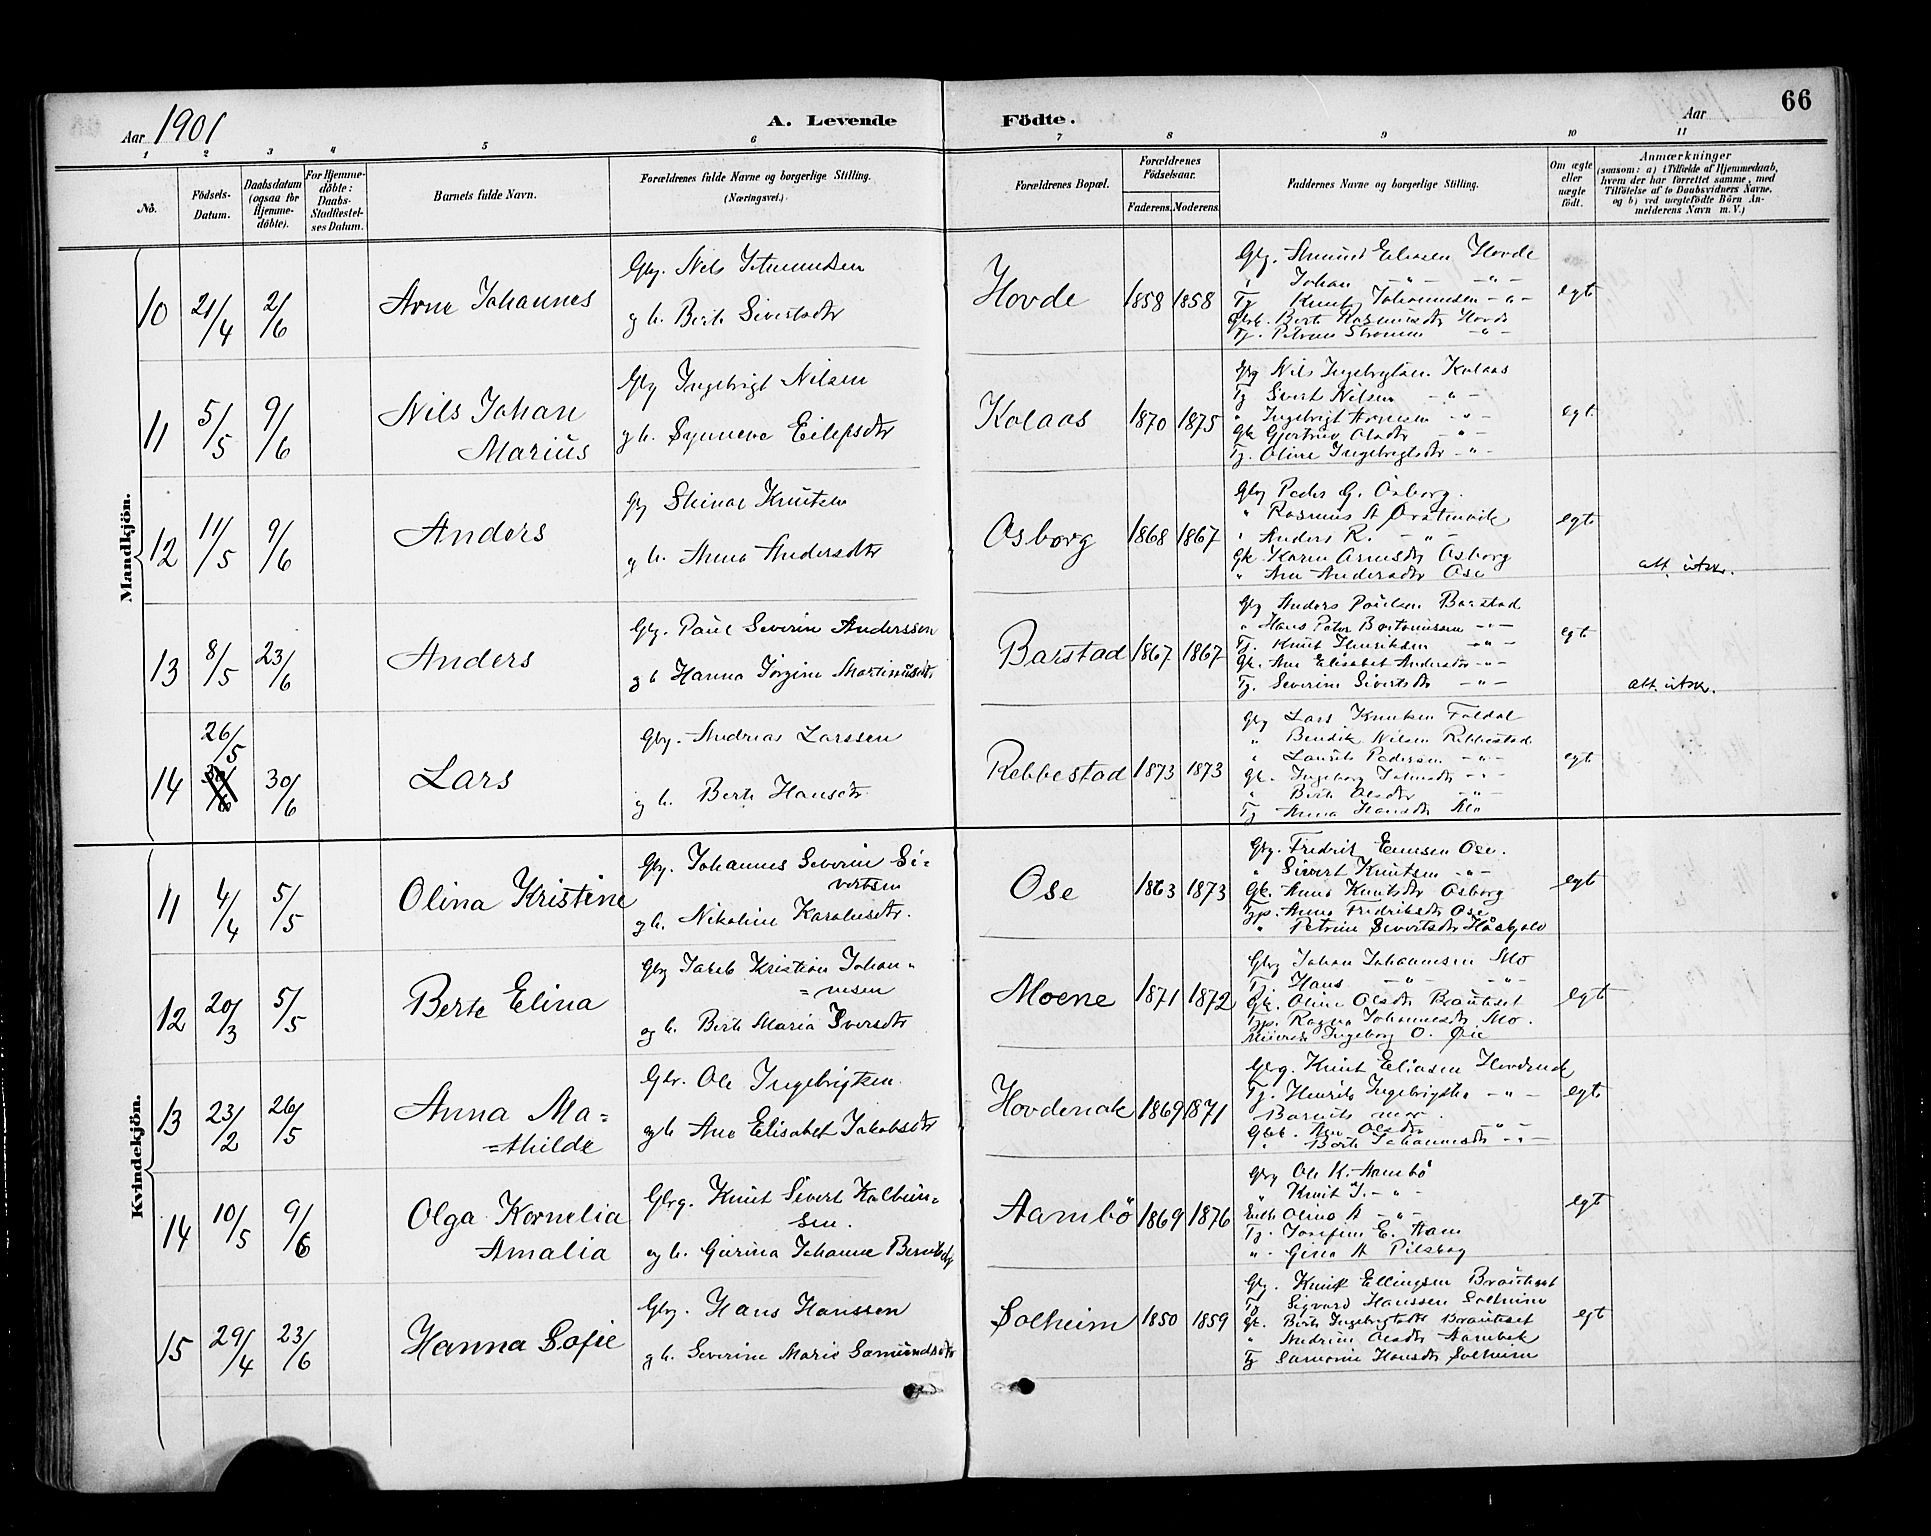 66
Aar 1901
A. Levende
Födte.
Aar
1 2 3 4 5 6 7 8 9 10 11
No.
Födsels-Datum.
Daabsdatum (ogsaa for Hjemme-döbte).
For Hjemme-döbte: Daabs-Stadfæstel-ses Datum.
Barnets fulde Navn.
Forældrenes fulde Navne og borgerlige Stilling.
(Næringsvei.)
Forældrenes Bopæl.
Forældrenes Födselsaar.
Faderens. Moderens.
Faddernes Navne og borgerlige Stilling.
Om ægte eller uægte födt.
Anmærkninger
(saasom: a) i Tilfælde af Hjemmedaab, hvem der har forrettet samme, med Tilföielse af to Daabsvidners Navne, og b) ved uægtefödte Börn Anmelderens Navn m. V.)
Mandkjön.
10 21/4 2/6 Arne Johannes
Gbg. Nils
g h. Berte Sivertsdtr
Hovde 1858 1858
Gbg. Amund Eliasen Hovde
" Johan -"- -"-
Tj Knut Johannesen -"-
Berte Rasmusdtr Hovde
Tj. Petrine Strømme -"-
egte
11 5/5 9/6 Nils Johan
Marius
Gbg Ingebrigt Nilsen
g h. Synneve Eilefsdtr
Kolaas 1870 1875
Gbg Nils Ingebrigtsen Kolaas
Tj Sivert Nilsen -"-
" Ingebrigt -"-
Gk Gjertrud Olsdtr -"-
Tj. Oline Ingebrigtsdtr -"-
egte
12 11/5 9/6 Anders
Steinar Knutsen
g h. Anna Andersdtr
Osborg 1868 1867
Gbg Peder G. Osborg.
" Rasmus A
" Anders R. -"-
Gk. Karen Osborg
" Ane Andersdtr Ose
egte
att. utskr.
13 8/5 23/6 Anders
Gbg. Paul Severin Anderssen
g h Hanna Jørgine Martinusdtr
Barstad 1867 1867
Gbg Anders Paulsen Barstad
" Hans Peter -"-
Tj. Knut Henriksen -"-
Gk. Ane Elisabet Andersdtr -"-
Tj. Severine Sivertsdtr -"-
egte
att. utskr.
14 26/5 30/6 Lars
Gbg. Andreas Larssen
g h. Berte Hansdtr
Rebbestad 1873 1873
Gbg Lars Knutsen Foldal
" Bendik Nilsen Rebbestad
" Laurits Pedersen -"-
Gk. Ingeborg -"-
" Berte Olsdtr -"-
Tj Anna Hansdtr Mo
egte
Kvindekjön.
11 4/4 5/5 Olina Kristine
Gbg. Johannes Severin Si-
vertsen
g h. Nikoline Karolusdtr.
Ose 1863 1873
Gbg. Fredrik Ose.
" Sivert Knutsen -"-
Gk. Anne Knutsdtr Osborg
Tjp. Anna Fredriksdtr Ose
" Petrine Sivertsdtr
egte
12 20/3 5/5 Berte Elina
Gbg Jakob Kristian Johan-
=nesen
og h. Berte Maria Iversdtr
Moene 1871 1872
Gbg Johan Johannesen Mo
Tj. Hans -"- -"-
Gk. Oline Olsdtr Brautaset
Tjp. Ragna Johannesdtr Mo.
Ingeborg O. Øie
egte
13 23/2 26/5 Anna Ma-
=thilde
Gbr. Ole Ingebrigtsen.
og h Ane Elisabet Jakobsdtr
Hovdenak 1869 1871
Gbg. Knut Eliasen Hovdenak
Tj. Henrik -"-
Barnets mor.
Gbk. Ane Olsdtr -"-
" Berte Johannesdtr -"-
egte
14 10/5 9/6 Olga Kornelia
Amalia
Gbrg. Knut Sivert Kolbein-
sen.
og h. Gurina Johanne
Aambö 1869 1876
Gbg Ole K. Aambö
" Knut J. -"-
Enke Olina A -"-
Tj. Josefine E. Aam
" Gina A Pilskog
egte
15 29/4 23/6 Hanna Sofie
Gbg. Hans Hanssen
g h. Severine Marie Samundsdtr
Solheim 1850 1859
Gbg. Knut Ellingsen Brautaset
Tj Sigvard Hanssen Solheim
Gk. Berte Ingebrigtsdtr Brautaset
" Andrine Olsdtr Aambak
Tj Hansdtr Solheim
egt